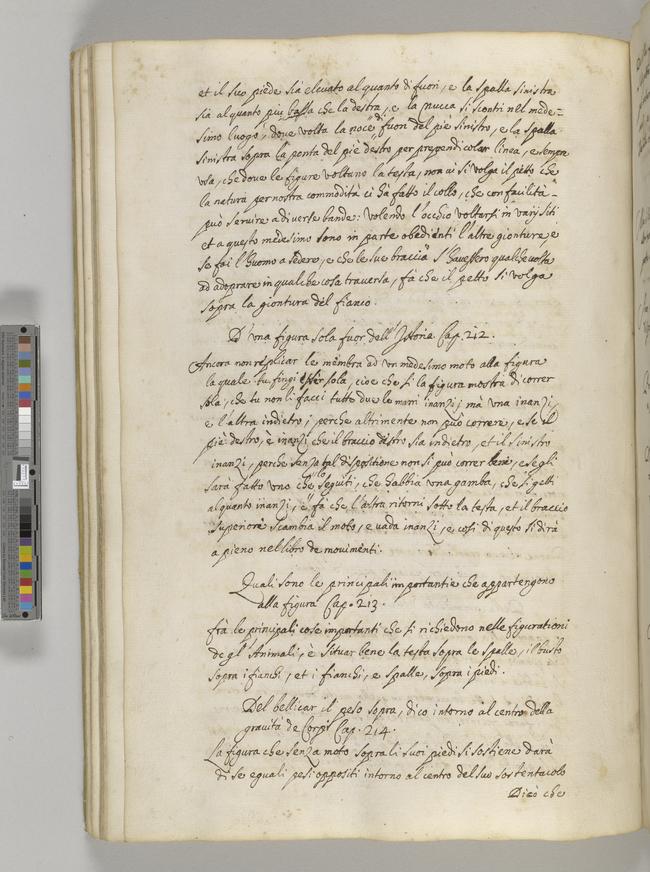 et il suo piede sia elevato alquanto di fuori, e la spalla sinistra
sia alquanto piu bassa che la destra, e la nucca si scontri nel mede=
simo luogo, dove volta la noce di fuori del piè sinistro, e la spalla
sinistra sopra la ponta del piè destro per prependicolar linea, e sempre
usa, che dove le figure voltano la testa, non vi si volga il petto che
la natura per nostra commodità ci hà fatto il collo, che con facilità
può servire a diverse bande: volendo l'occhio voltarsi in varij siti
et a questo medesimo sono in parte obedienti l'altre gionture, e
se fai l'huomo a sedere, e che le sue braccia s'havessero qualche volta
ad adoprare in qualche cosa traversa, fà che il petto si volga
sopra la giontura del fianco.
D'una figura sola fuor dell'Istoria. Cap. 212.
Ancora non replicar le membra ad un medesimo moto alla figura
la quale tu fingi esser sola, cioè che si la figura mostra di correr
sola, che tu non li facci tutte due le mani inanzi; mà una inanzi,
e l'altra indietro; perche altrimente non può correre, e se il
piè destro, è inanzi che il braccio destro sia indietro, et il sinistro
inanzi, perche senza tal dispositione non si può correr bene, e se gli
sarà fatto uno che lo seguiti, che habbia una gamba, che si getti
alquanto inanzi, e fà che l'altra ritorni sotto la testa, et il braccio
superiore scambia il moto, e vada inanzi, e cosi di questo si dirà
a pieno nel libro de movimenti.
Quali sono le principali importantie che appartengono
alla figura Cap. 213.
frà le principali cose importanti che si richiedono nelle figurationi
de gl'Animali, è situar bene la testa sopra le spalle, il busto
sopra i fianchi, et i fianchi, e spalle, sopra i piedi.
Del bellicar il peso sopra, dico intorno al centro della
gravità de Corpi Cap. 214.
La figura che senza moto sopra li suoi piedi si sostiene darà
di se eguali pesi oppositi intorno al centro del suo sostentacolo
Dico che